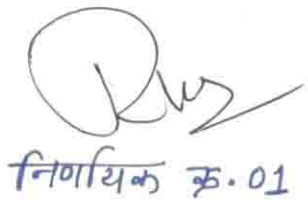 निर्णायक क्र. 01